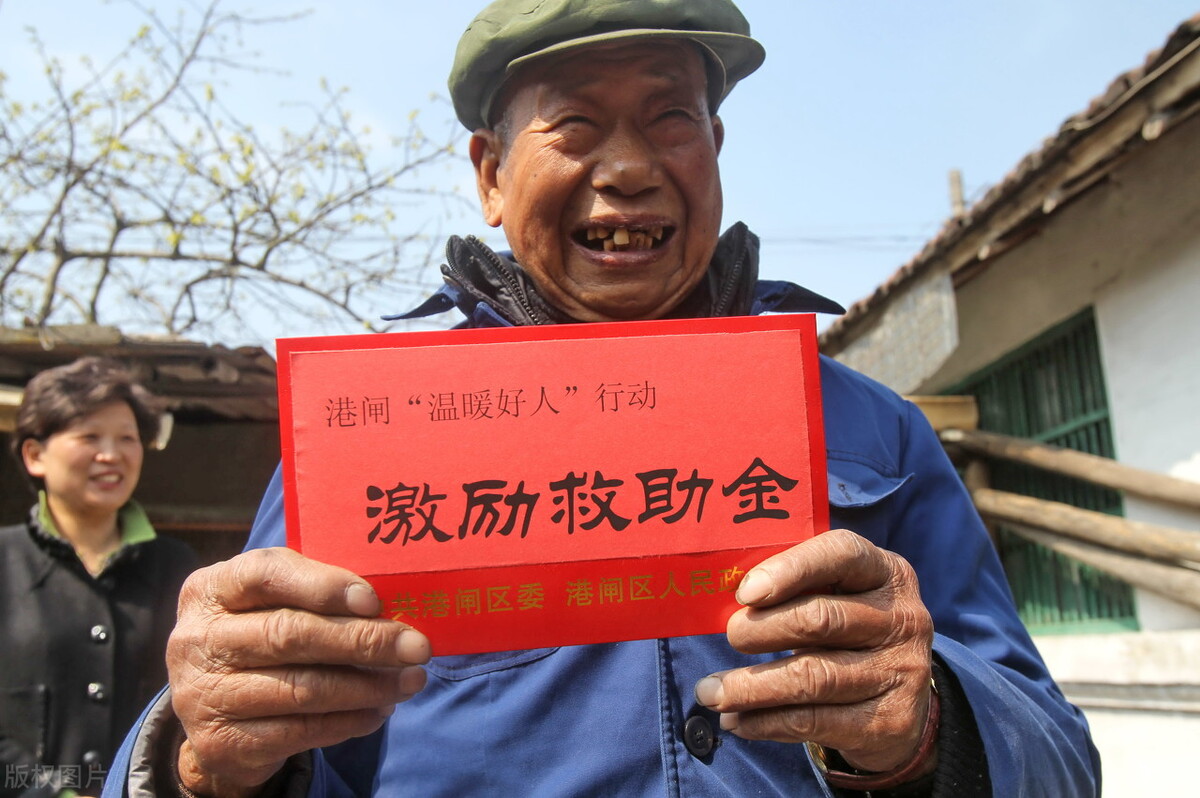 港闸“温暖好人”行动
激励救助金
共港闸区委 港闸区人民政
版权图片